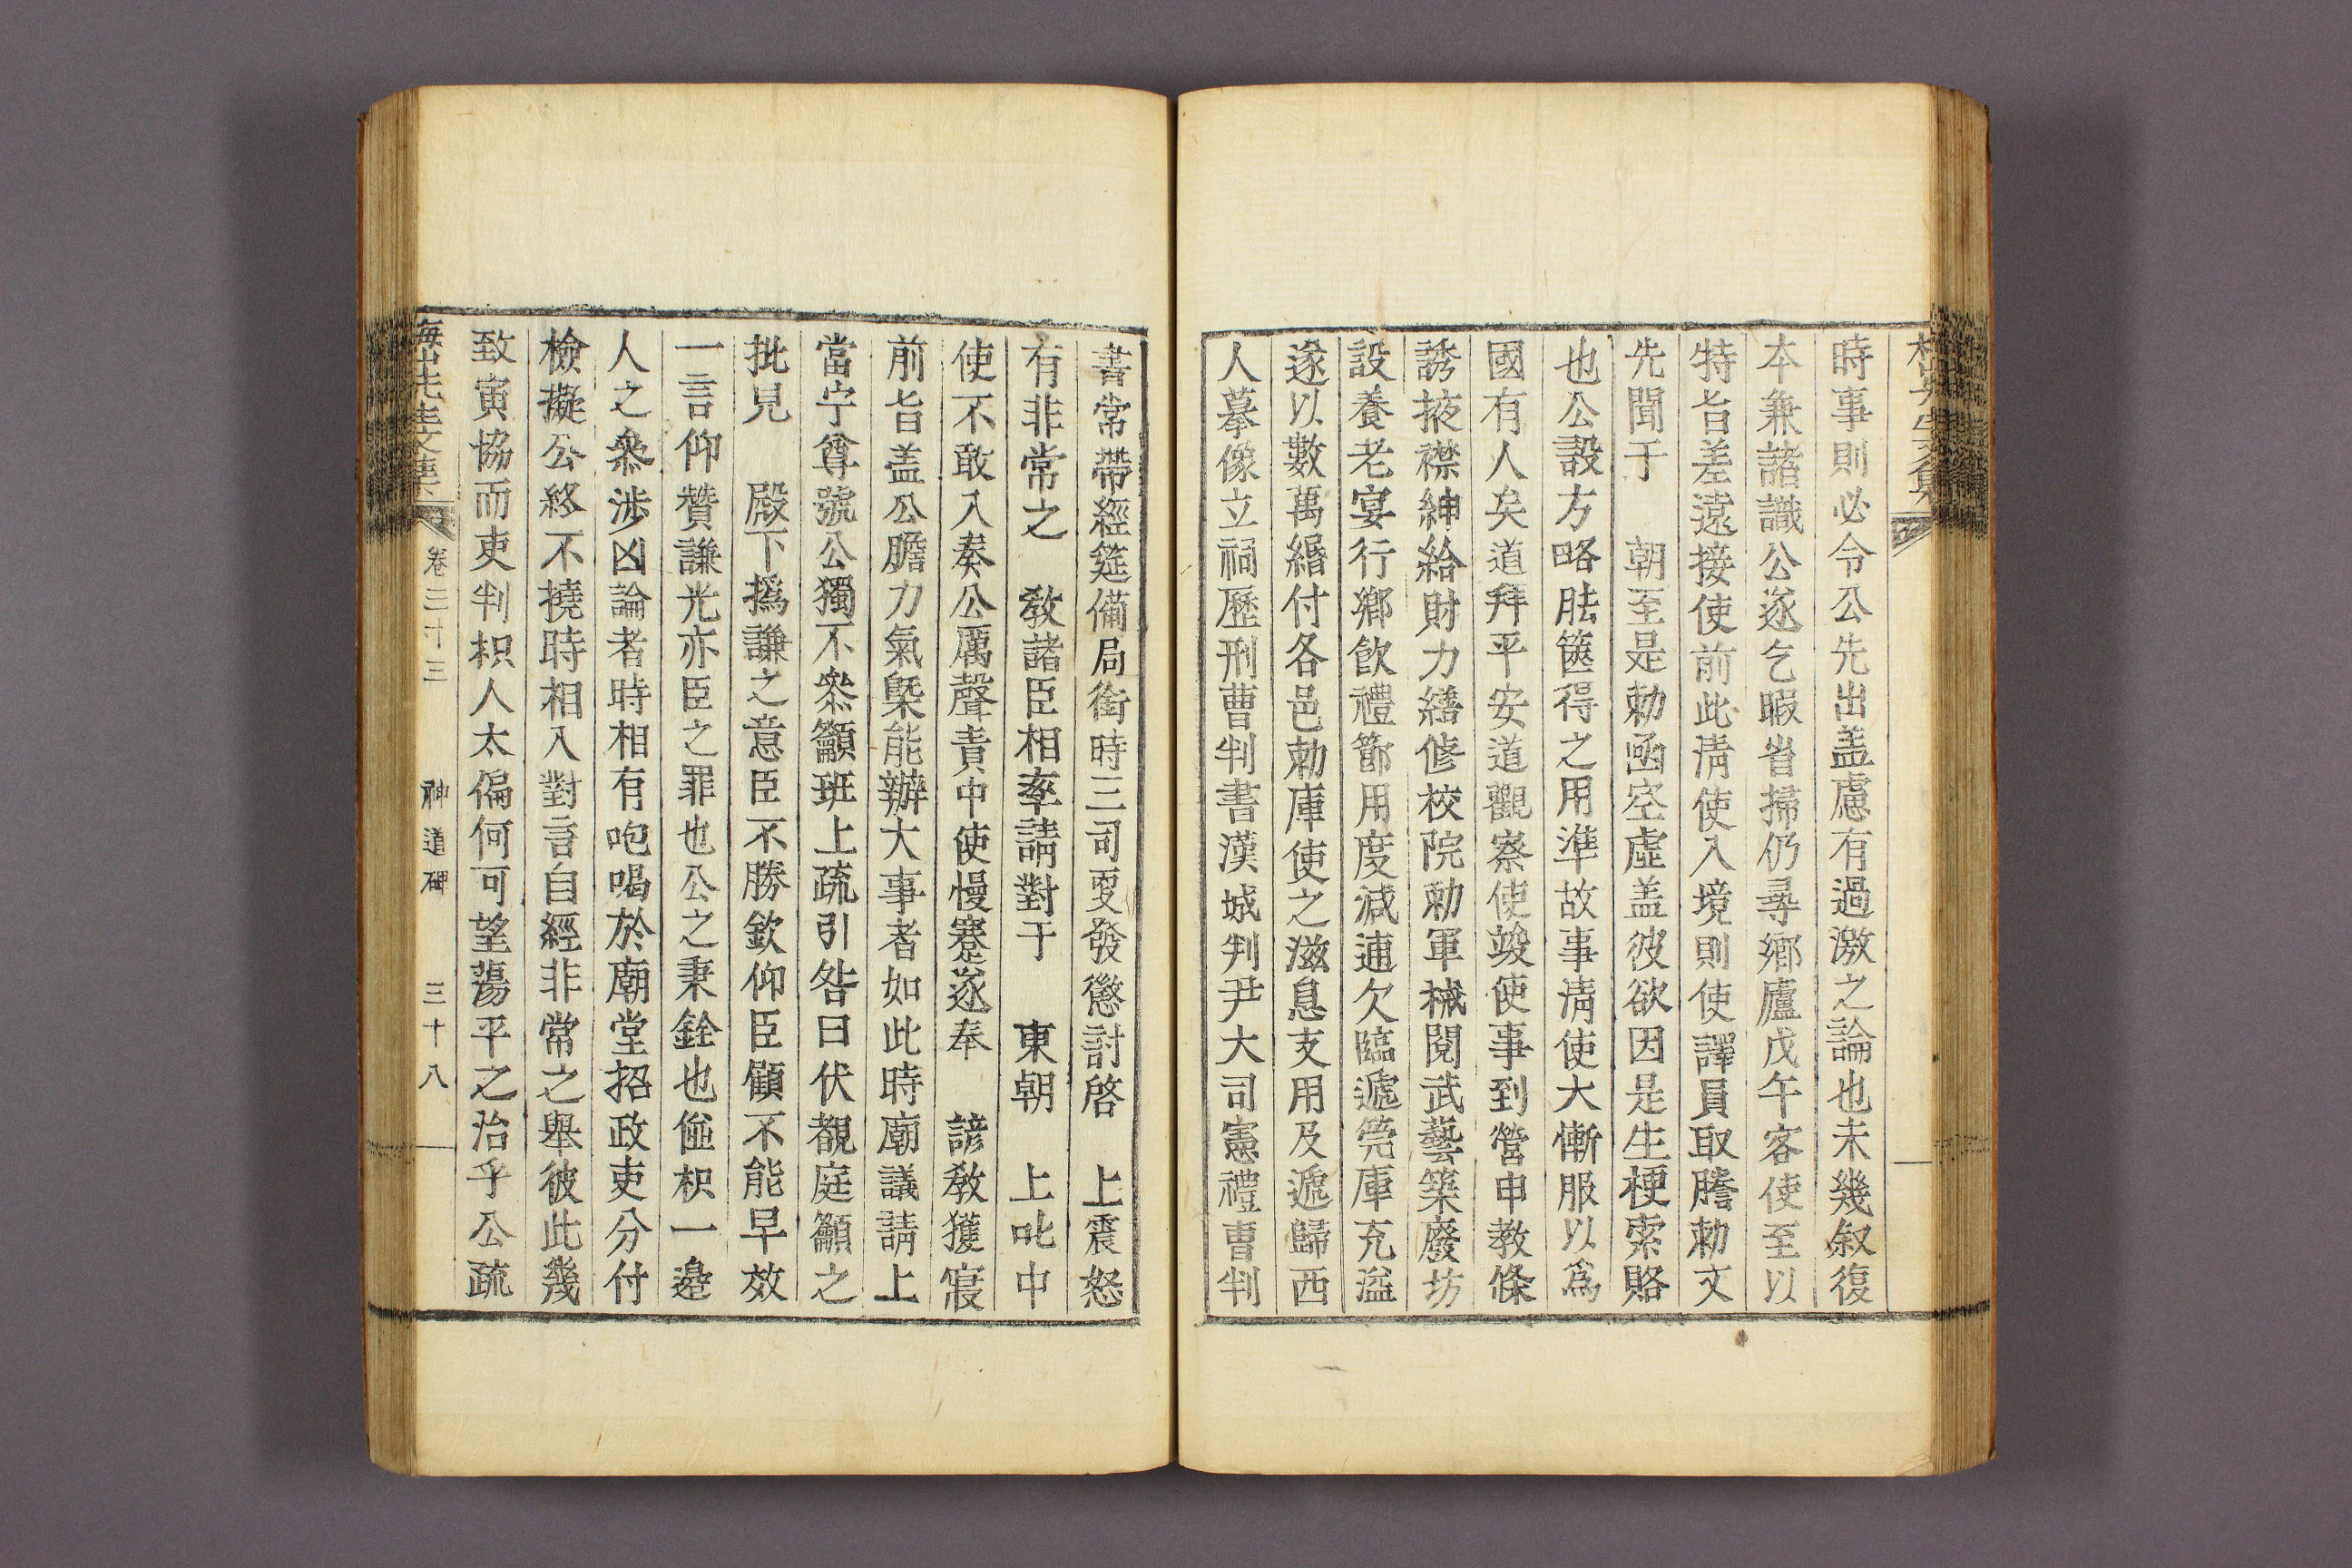 時事則必令公先出盖慮有過激之論也未幾叙復
本兼諸識公遂乞暇省掃仍尋鄉廬戊午客使至以
特旨差遠接使前此淸使入境則使譯員取謄勅文
先聞于 朝至是勅函空虛盖彼欲因是生梗索賂
也公設方略胠篋得之用準故事淸使大慚服以爲
國有人矣道拜平安道觀察使竣使事到營申教條
誘掖襟紳給財力繕修校院勅軍械閱武藝築廢坊
設養老宴行鄉飮禮節用度减逋欠臨遞筦庫充溢
遂以數萬緡付各邑勅庫使之滋息支用及遞歸西
人摹像立祠歷刑曹判書漢城判尹大司憲禮曹判
書常帶經筵備局銜時三司更發懲討啓 上震怒
有非常之 敎諸臣相率請對于 東朝 上叱中
使不敢入奏公厲聲責中使慢蹇遂奉 諺敎獲寢
前旨盖公膽力氣槩能辦大事者如此時廟議請上
當宁尊號公獨不叅籲班上疏引咎曰伏覩庭籲之
批見 殿下撝謙之意臣不勝欽仰臣顧不能早效
一言仰贊謙光亦臣之罪也公之秉銓也偏枳一邊
人之叅涉凶論者時相有咆喝於廟堂招政吏分付
檢擬公終不撓時相入對言自經非常之舉彼此幾
致寅協而吏判枳人太偏何可望蕩平之治乎公疏
卷三十三 神道碑 三十八